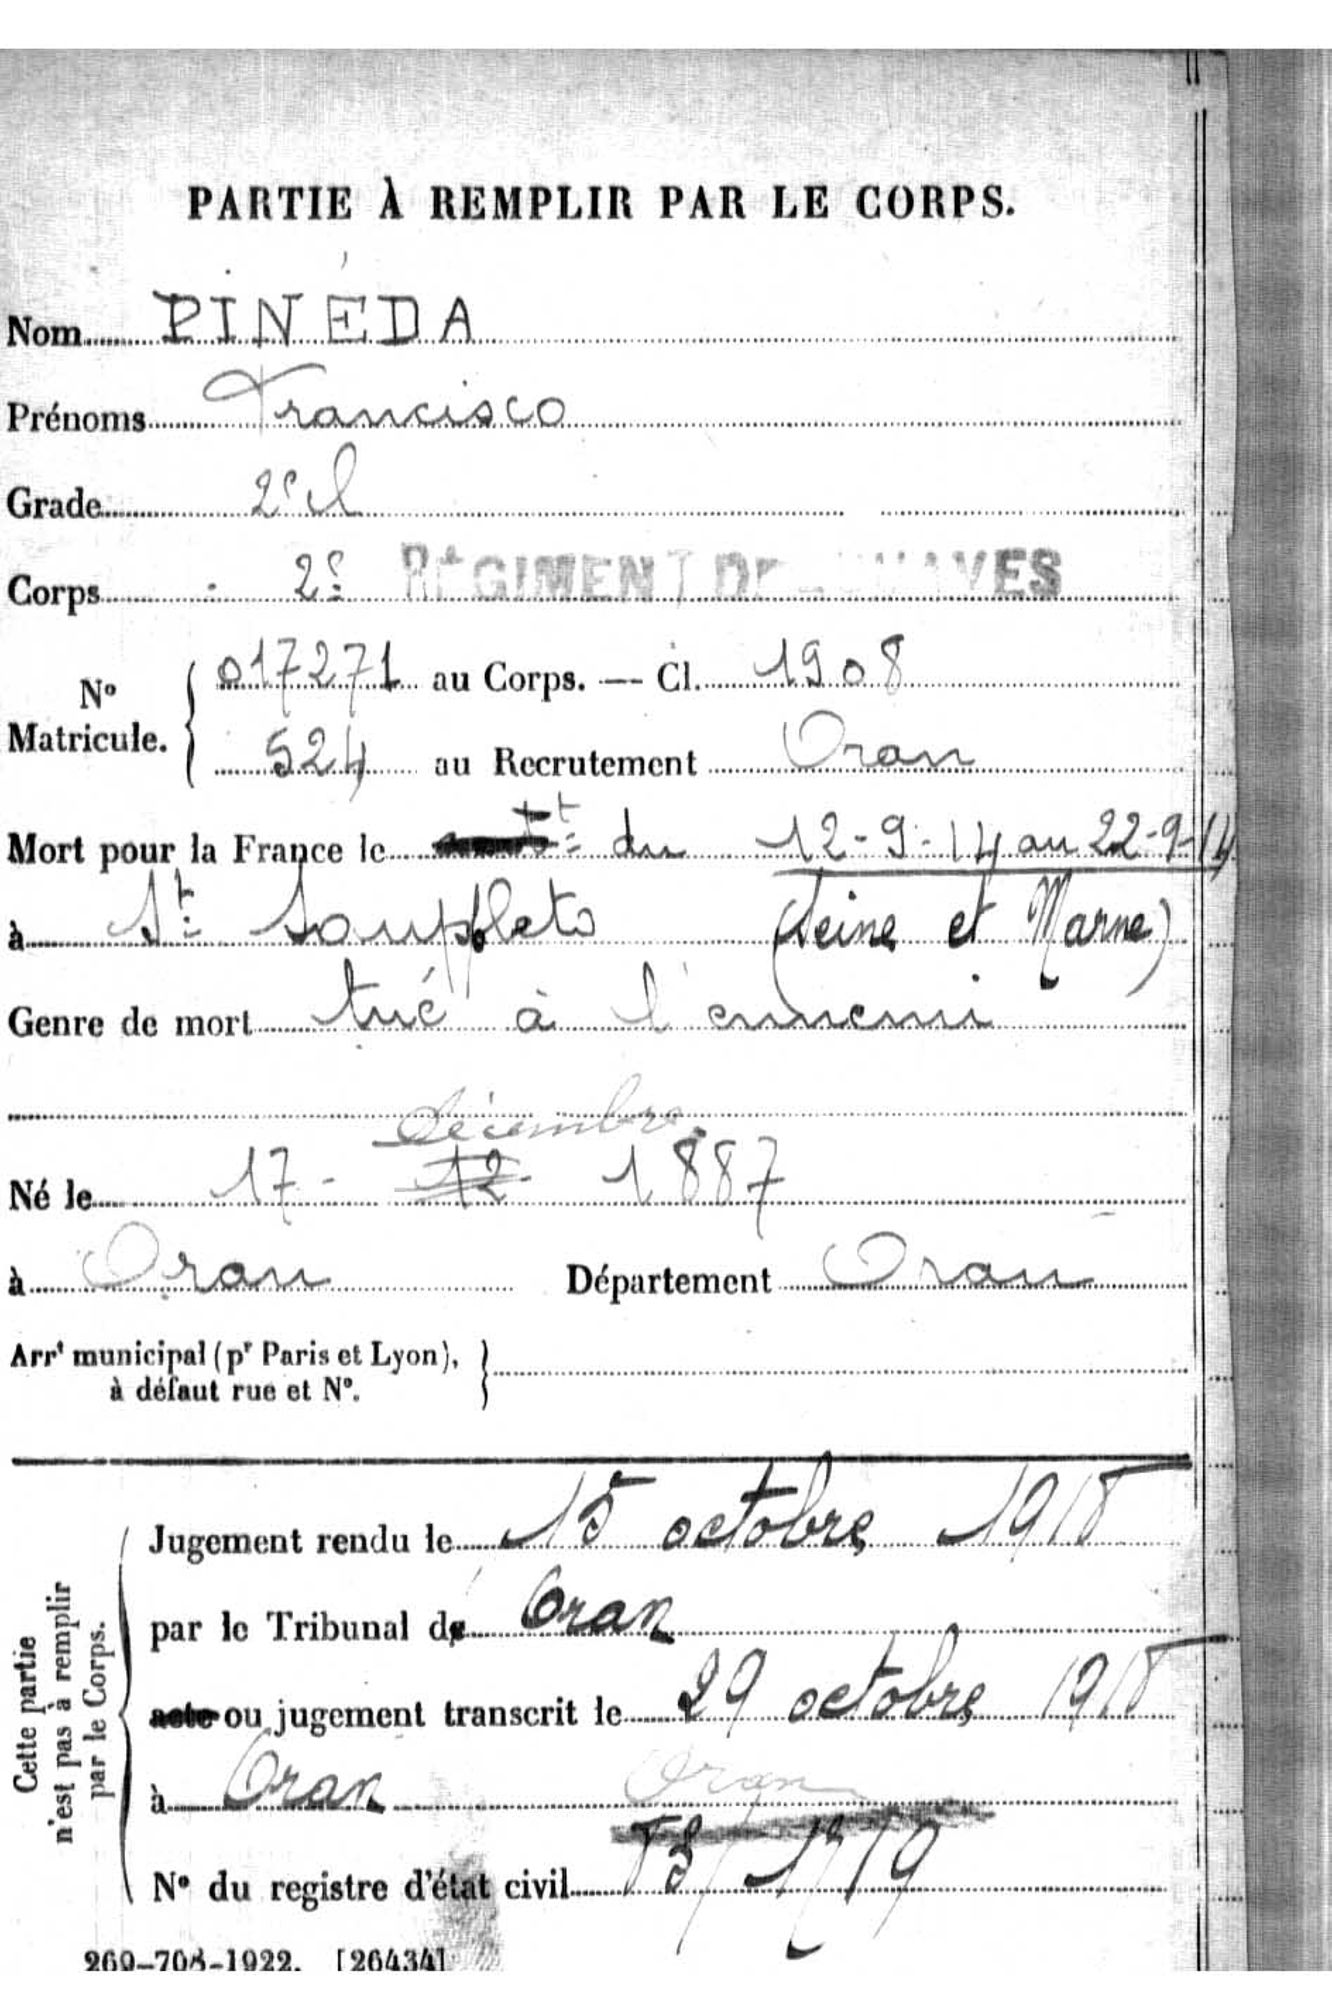 PARTIE À REMPLIR PAR LE CORPS.
Nom PINÉDA
Prénoms Francisco
Grade 2e cl
Corps 2e RÉGIMENT DE ZOUAVES
No Matricule. { 017271 au Corps. — Cl. 1908
524 au Recrutement Oran
Mort pour la France le du 12-9-14 au 22-9-14
à St Soupplets (Seine et Marne)
Genre de mort tué à l'ennemi
décembre
Né le 17 - 12 - 1887
à Oran Département Oran
Arrt municipal (pr Paris et Lyon),
à défaut rue et No.
Jugement rendu le 15 octobre 1918
par le Tribunal de Oran
acte ou jugement transcrit le 29 octobre 1918
à Oran Oran
No du registre d'état civil
Cette partie
n'est pas à remplir
par le Corps.
269-708-1922. [26434]